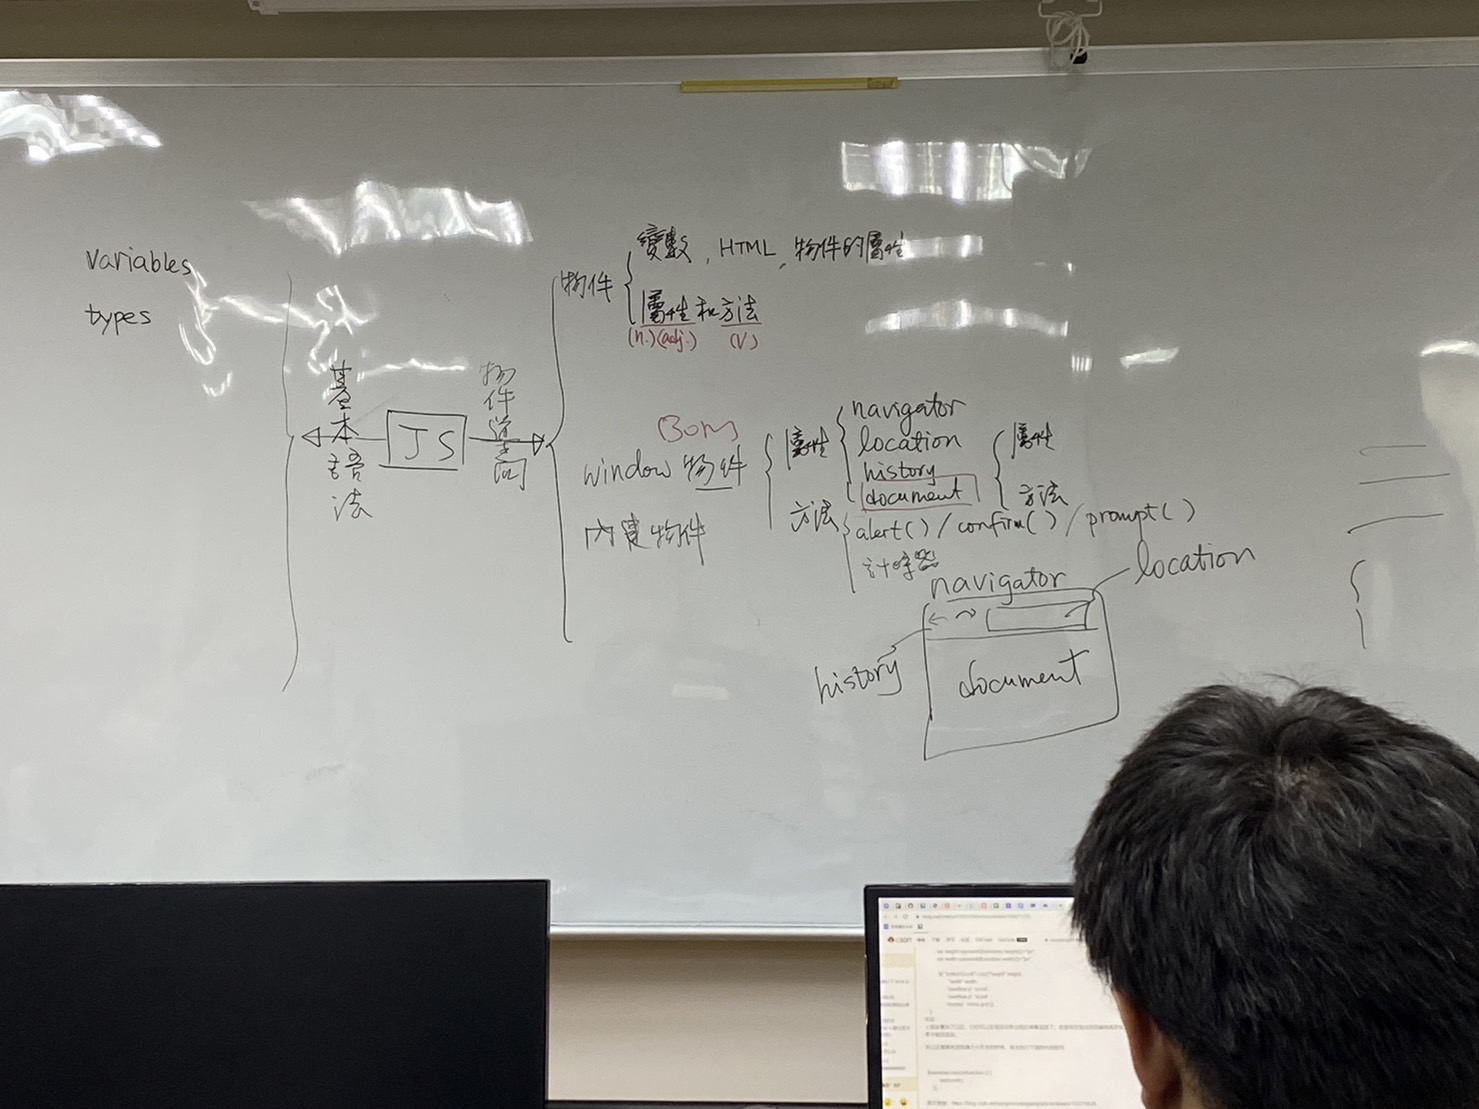 variables
types
基本語法
JS
物件導向
物件
變數, HTML, 物件的屬性
屬性和方法
(n.)(adj.) (V)
BOM
window 物件
內建物件
屬性
navigator
location
history
document
屬性
方法
方法
alert() / confirm() / prompt()
計時器
navigator
location
history
document